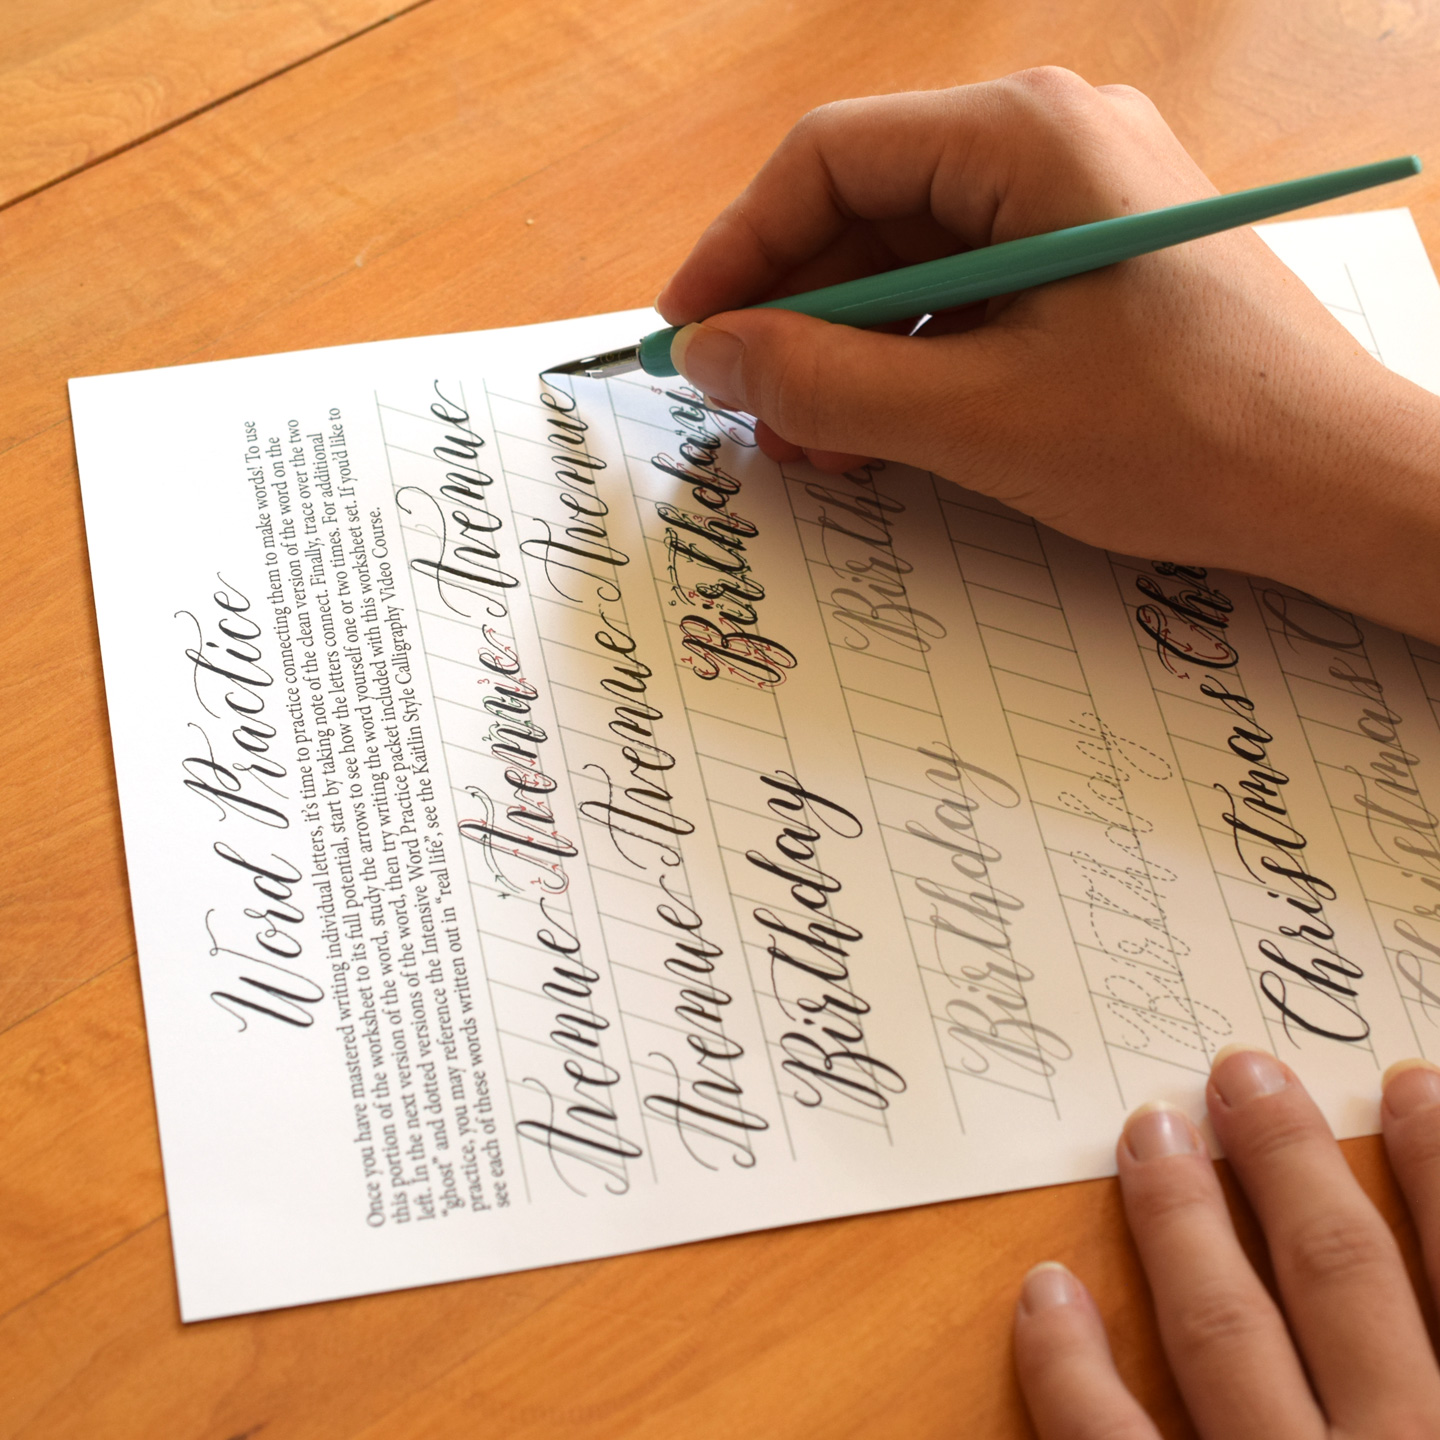 Word Practice
Once you have mastered writing individual letters, it's time to practice connecting them to make words! To use
this portion of the worksheet to its full potential, start by taking note of the clean version of the word on the
left. In the next version of the word, study the arrows to see how the letters connect. Finally, trace over the two
“ghost” and dotted versions of the word, then try writing the word yourself one or two times. For additional
practice, you may reference the Intensive Word Practice packet included with this worksheet set. If you'd like to
see each of these words written out in “real life”, see the Kaitlin Style Calligraphy Video Course.
Avenue Avenue Avenue
Avenue Avenue Avenue
Birthday Birthday
Birthday Birtha
Birthday
Christmas Chr
Christmas C